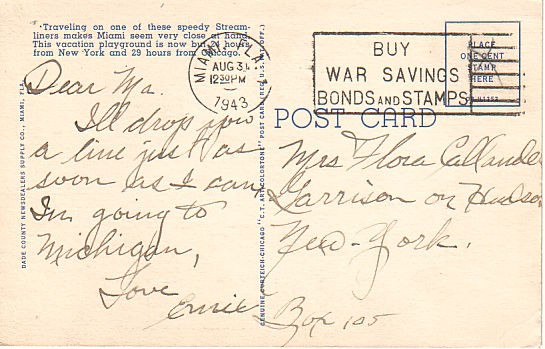 "Traveling on one of these speedy Stream-
liners makes Miami seem very close at hand.
This vacation playground is now but 24 hours
from New York and 29 hours from Chicago."
MIAMI, FLA.
AUG 31
1230 PM
1943
BUY
WAR SAVINGS
BONDS AND STAMPS
PLACE
ONE CENT
STAMP
HERE
POST CARD
Dear Ma.
I'll drop you
a line just as
soon as I can,
I'm going to
Michigan,
Love
Ernie
Mrs Flora Callander
Garrison on Hudson
New-York.
Box 105
DADE COUNTY NEWSDEALERS SUPPLY CO., MIAMI, FLA.
GENUINE CURTEICH-CHICAGO "C.T. ART-COLORTONE" POST CARD (REG. U.S. PAT. OFF.)